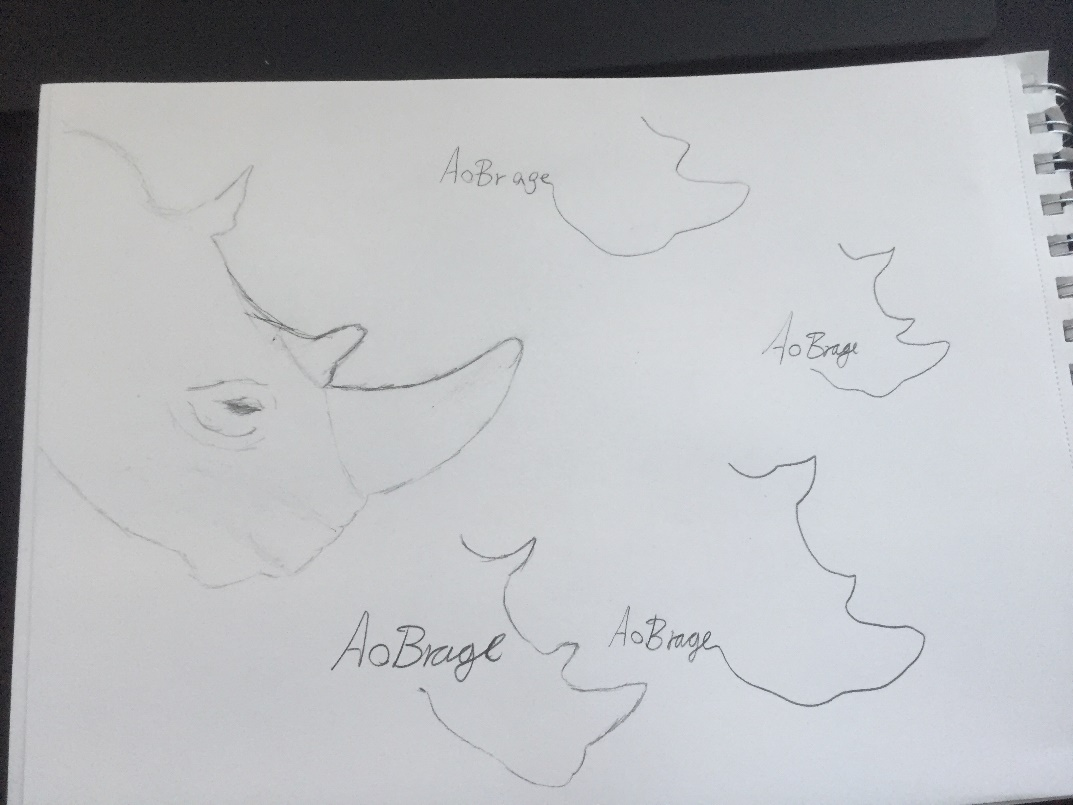 AoBrage
AoBrage
AoBrage
AoBrage